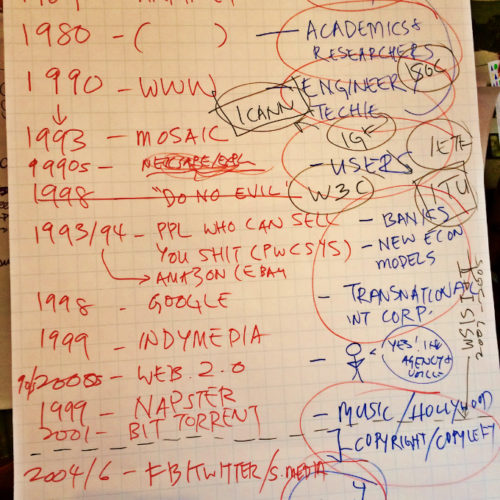 1980 - ( ) — ACADEMICS &
RESEARCHERS
1990 - WWW - ENGINEER/
TECHIE
ISOC
ICANN
1993 - MOSAIC
IGF
- USERS
IETF
1990s -
1998 - "DO NO EVIL"
W3C
ITU
1993/94 - PPL WHO CAN SELL
YOU SHIT (PWCSYS)
→ AMAZON (EBAY
- BANKS
- NEW ECON
MODELS
1998 - GOOGLE
- TRANSNATIONAL
INT CORP.
WSIS
2005
1999 - INDYMEDIA
YES! I
AGENCY &
VOICE
WEB. 2.0
1999 - NAPSTER
2001 - BIT TORRENT
- MUSIC/HOLLYWOOD
COPYRIGHT/COPYLEFT
2004/6 - FB/TWITTER/S.MEDIA